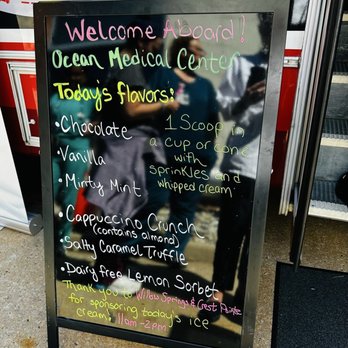 Welcome Aboard!
Ocean Medical Center
Today's flavors:
• Chocolate
• Vanilla
• Minty Mint
• Cappuccino Crunch
(contains almond)
• Salty Caramel Truffle
• Dairy free Lemon Sorbet
1 Scoop in
a cup or cone
with
sprinkles and
whipped cream
Thank you to Willow Springs & Crest Pointe
for sponsoring today's ice
cream! 11am-2pm